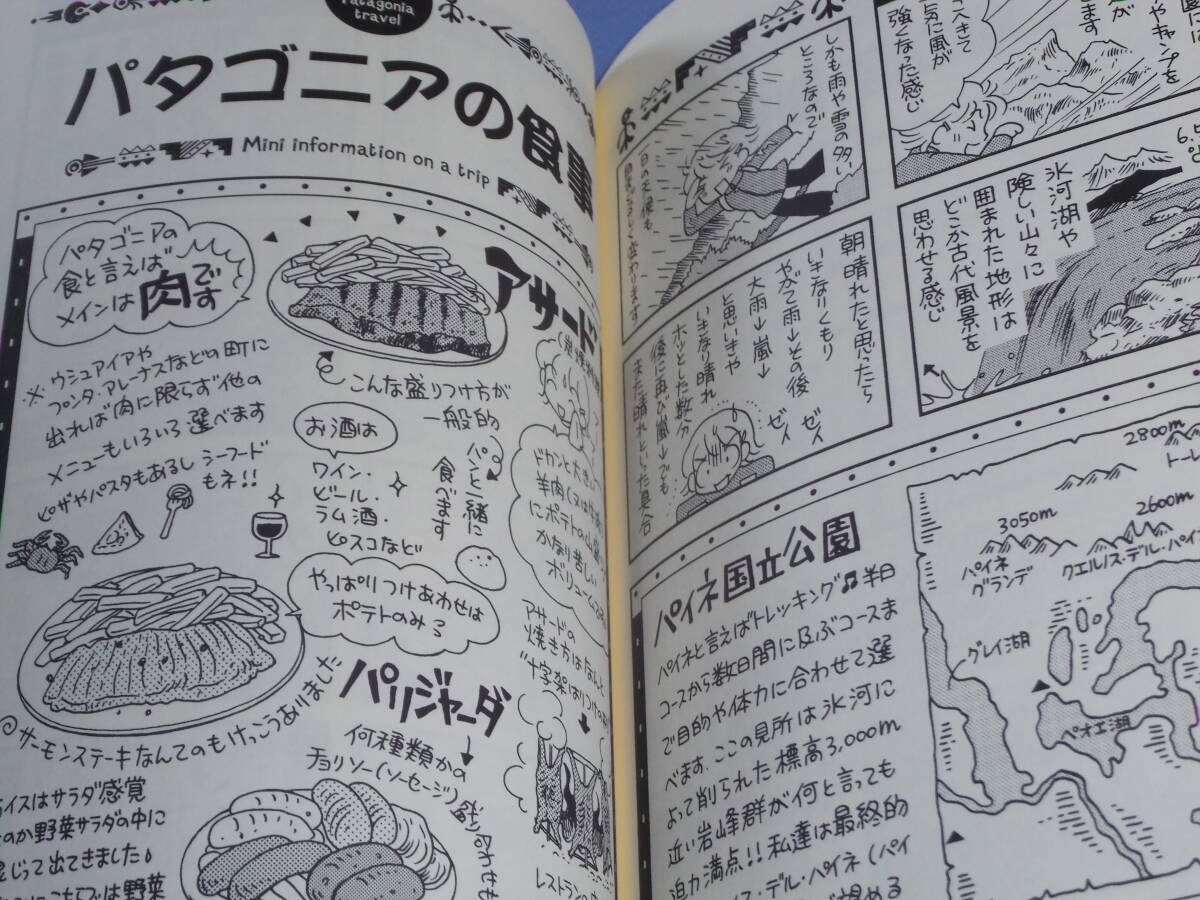 Patagonia
travel
パタゴニアの食事
Mini information on a trip
パタゴニアの
食と言えば
メインは肉です
※ウシュアイアや
プンタ・アレーナスなどの町に
出れば肉に限らず他の
メニューもいろいろ選べます
ピザやパスタもあるし シーフード
もネ!!
アサード
こんな盛りつけ方が
一般的
パンと一緒に
食べます
お酒は
ワイン・
ビール・
ラム酒・
ピスコなど
ドカンと大き
羊肉(又は
にポテトの山
かなり苦しい
ボリューム
やっぱりつけあわせは
ポテトのみ3
アサードの
焼き方はなんと
"十字架はりつけの
◎サーモンステーキなんてのもけっこうありました
パリジャーダ
何種類かの
チョリソー(ソーセージ)盛り合わせ
レストラン
ライスはサラダ感覚
なのか野菜サラダの中に
混じって出てきました♪
は野菜
やキャンプを
へきて
気に風が
強くなった感じ
しかも雨や雪の多い
ところなので
氷河湖や
険しい山々に
囲まれた地形は
どこか古代風景を
思わせる感じ
朝晴れたと思ったら
いきなりくもり
やがて雨→その後
大雨→嵐→
と思いきや
いきなり晴れ
ホッとした数分
後に再び嵐→でも
また晴れといった具合
ゼイ
ゼイ
パイネ国立公園
パイネと言えばトレッキング♫半日
コースから数日間に及ぶコースま
で目的や体力に合わせて選
べます。ここの見所は氷河に
よって削られた標高3,000m
近い岩峰群が何と言っても
迫力満点!!私達は最終的
ス・デル・パイネ(パイ
が望める
2800m
3050m
2600m
パイネ
グランデ
クエルノス・デル・パイネ
グレイ湖
ペオエ湖